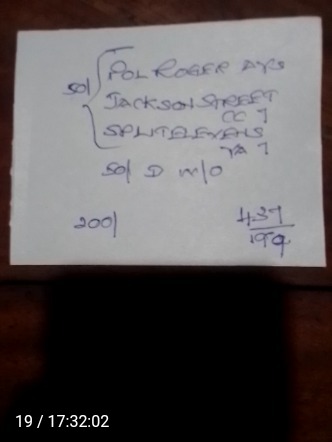 50/ POL ROGER AYS
JACKSON STREET
CC 7
SPLITELEVENS
YA 7
50/ D W/O
200/
437
199
19 / 17:32:02